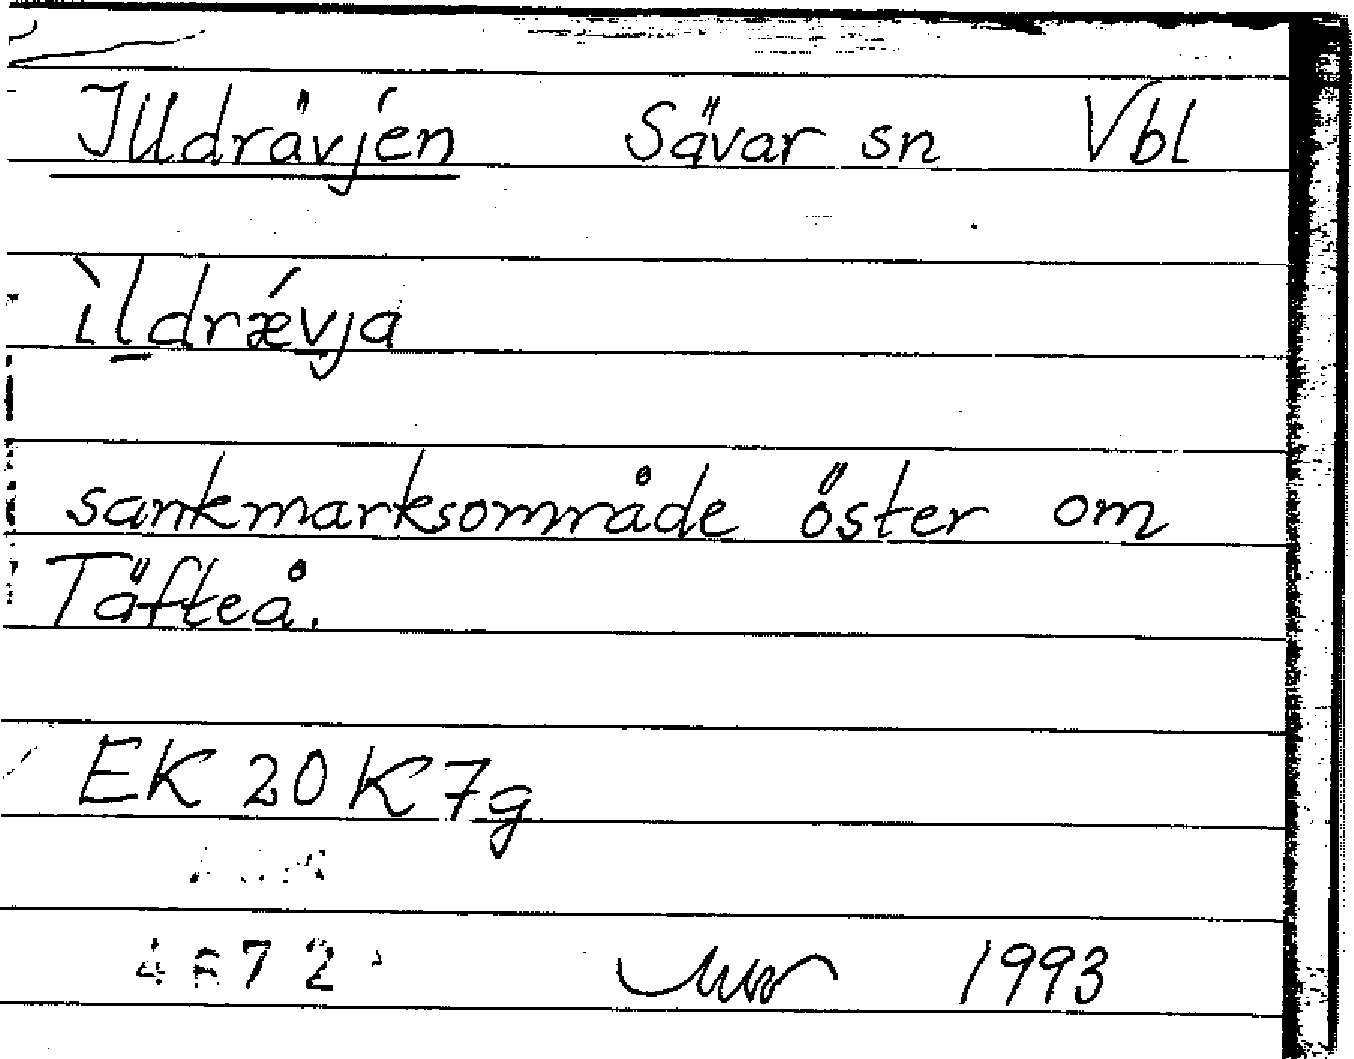 Illdrävjén Sävar sn Vbl
ìldrǽvja
sankmarksområde öster om
Täfteå.
EK 20 K 7g
1993